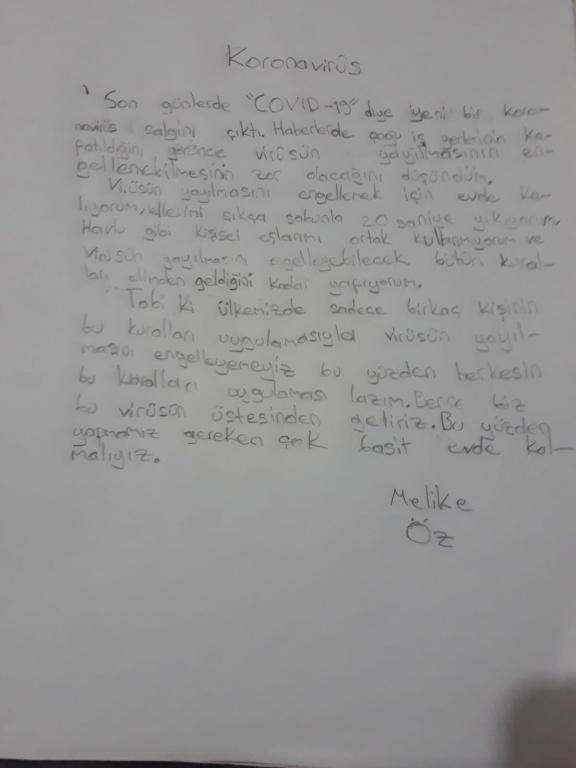 Koronavirüs
Son günlerde "COVID-19" diye yeni bir koro-
navirüs salgını çıktı. Haberlerde çoğu iş yerlerinin ka-
patıldığını görünce virüsün yayılmasının en-
gellenebilmesinin zor olacağını düşündüm.
Virüsün yayılmasını engellemek için evde ka-
lıyorum, ellerimi sıkça sabunla 20 saniye yıkıyorum,
Havlu gibi kişisel eşyalarımı ortak kullanmıyorum ve
virüsün yayılmasını engelleyebilecek bütün kural-
ları elimden geldiğini kadar yapıyorum.
Tabi ki ülkemizde sadece birkaç kişinin
bu kuralları uygulamasıyla virüsün yayıl-
masını engelleyemeyiz bu yüzden herkesin
bu kuralları uygulaması lazım. Bence biz
bu virüsün üstesinden geliriz. Bu yüzden
yapmamız gereken çok basit evde kal-
malıyız.
Melike
Öz